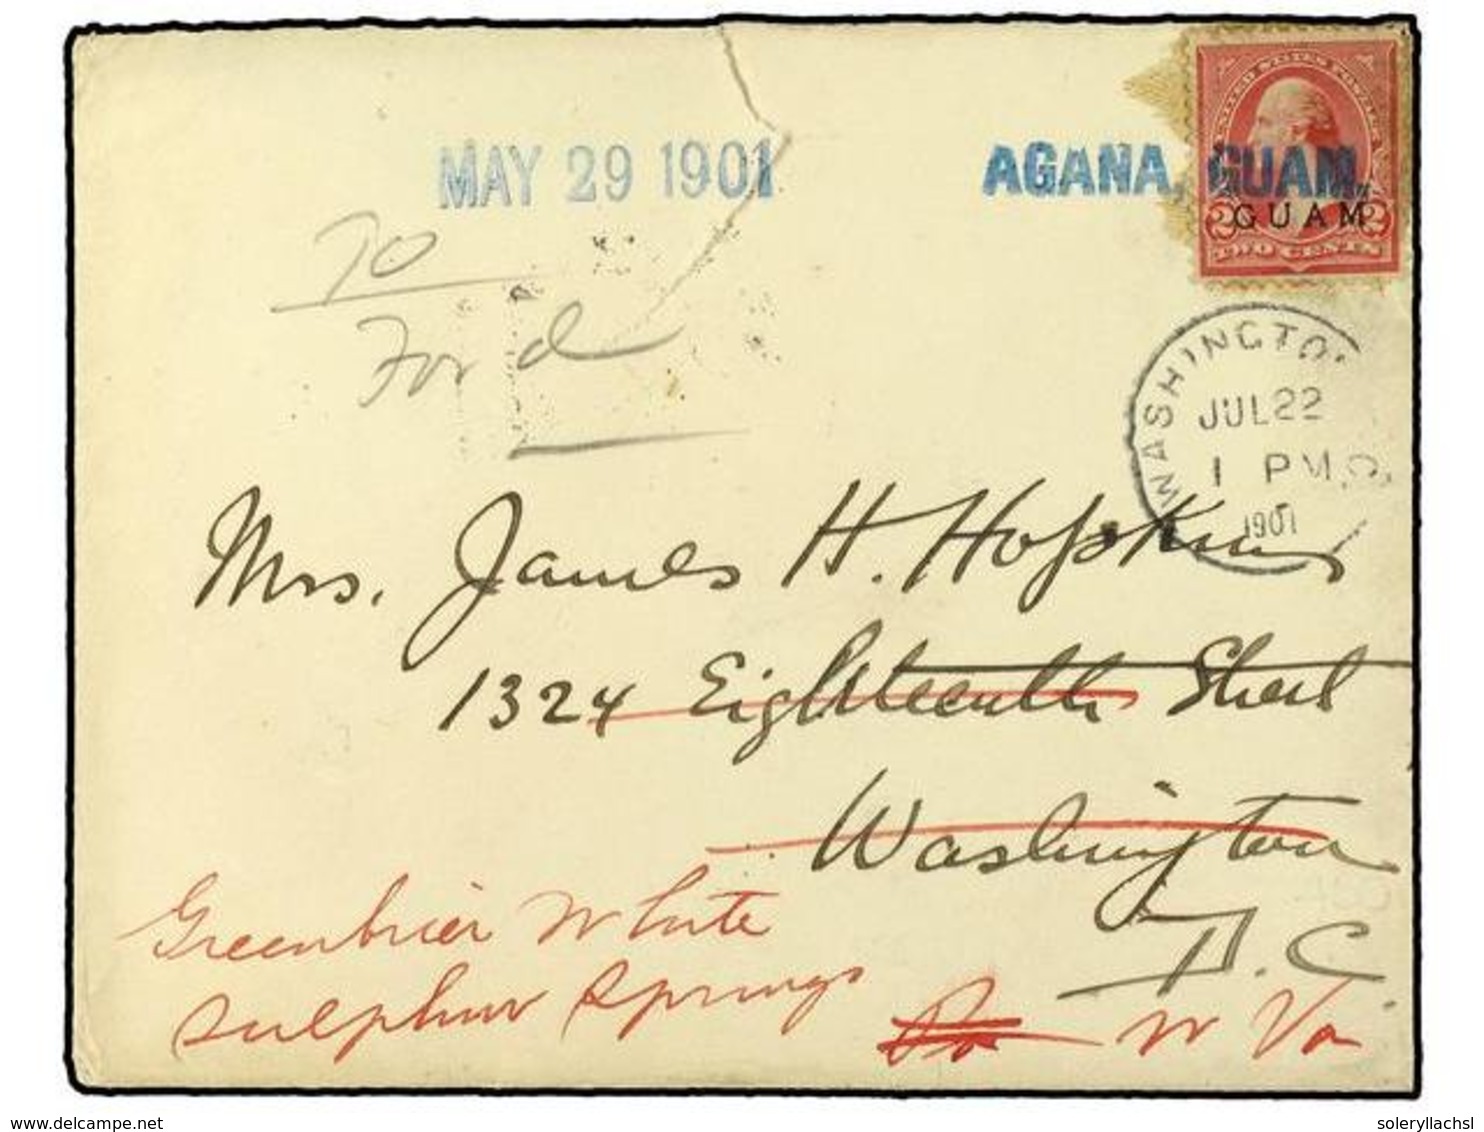 UNITED STATES POSTAGE
MAY 29 1901
AGANA, GUAM.
GUAM
2 2
TWO CENTS
To
Ford
WASHINGTON
JUL 22
1 PM
1901
Mrs. James H. Hopkins
1324 Eighteenth Street
Washington
D.C.
Greenbrier White
Sulphur Springs
W Va
delcampe.net
soleryllachsl